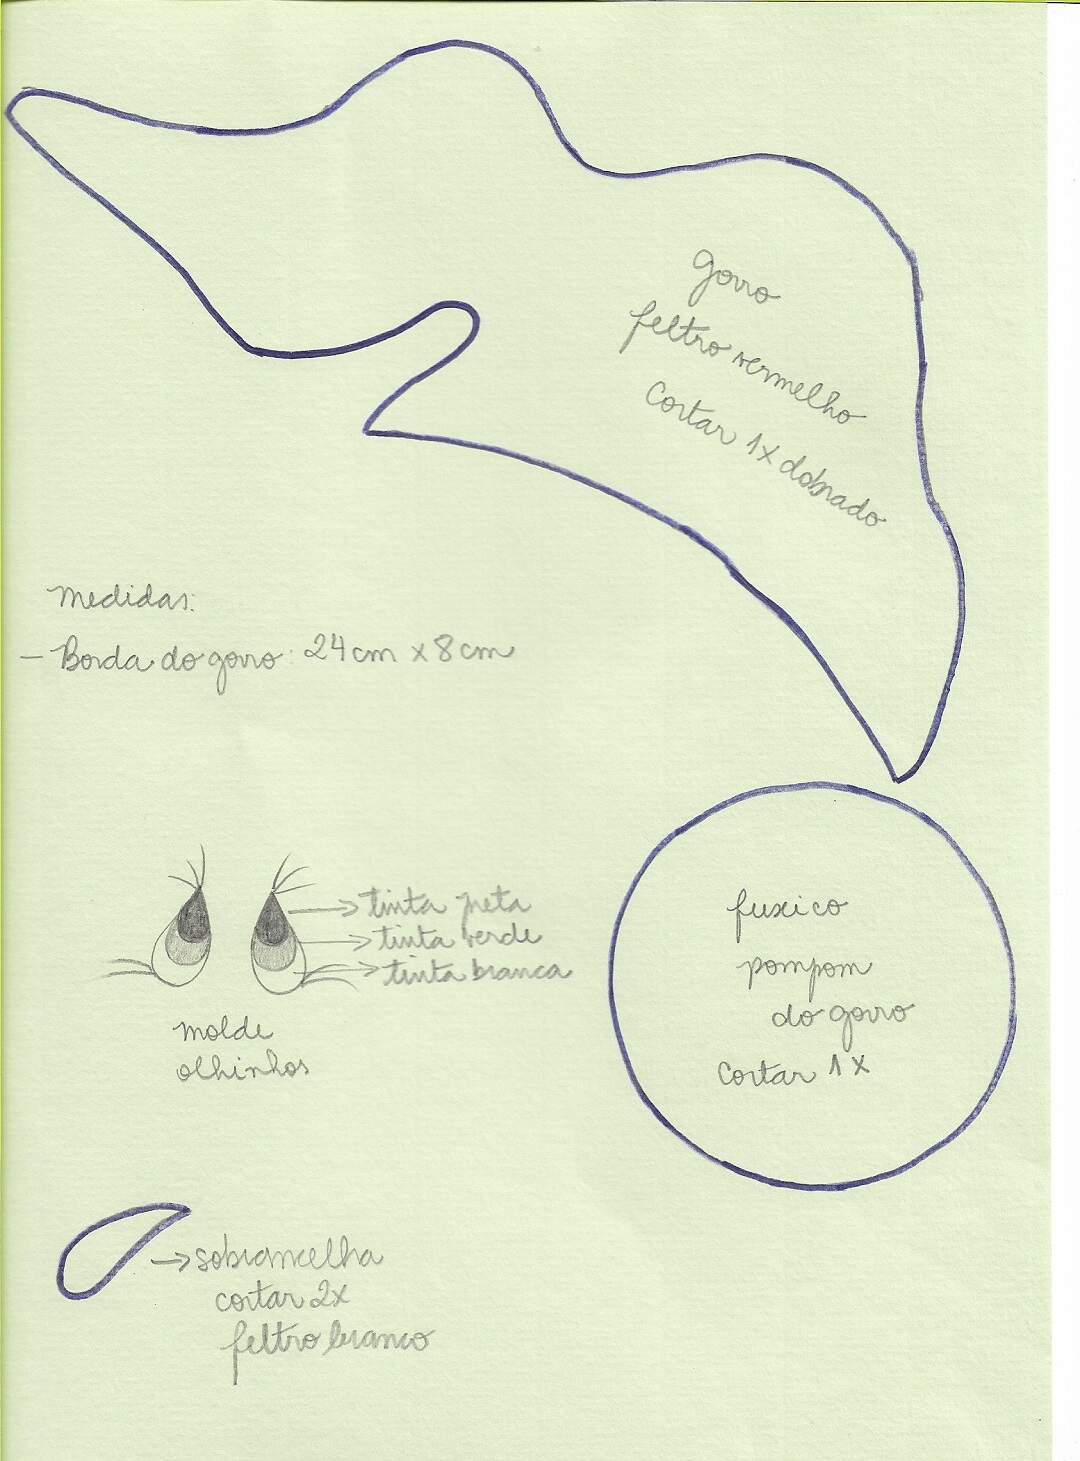 gorro
feltro vermelho
Cortar 1x dobrado
medidas:
- Borda do gorro: 24cm x 8cm
tinta preta
tinta verde
tinta branca
molde
olhinhos
fuxico
pompom
do gorro
cortar 1x
sobrancelha
cortar 2x
feltro branco